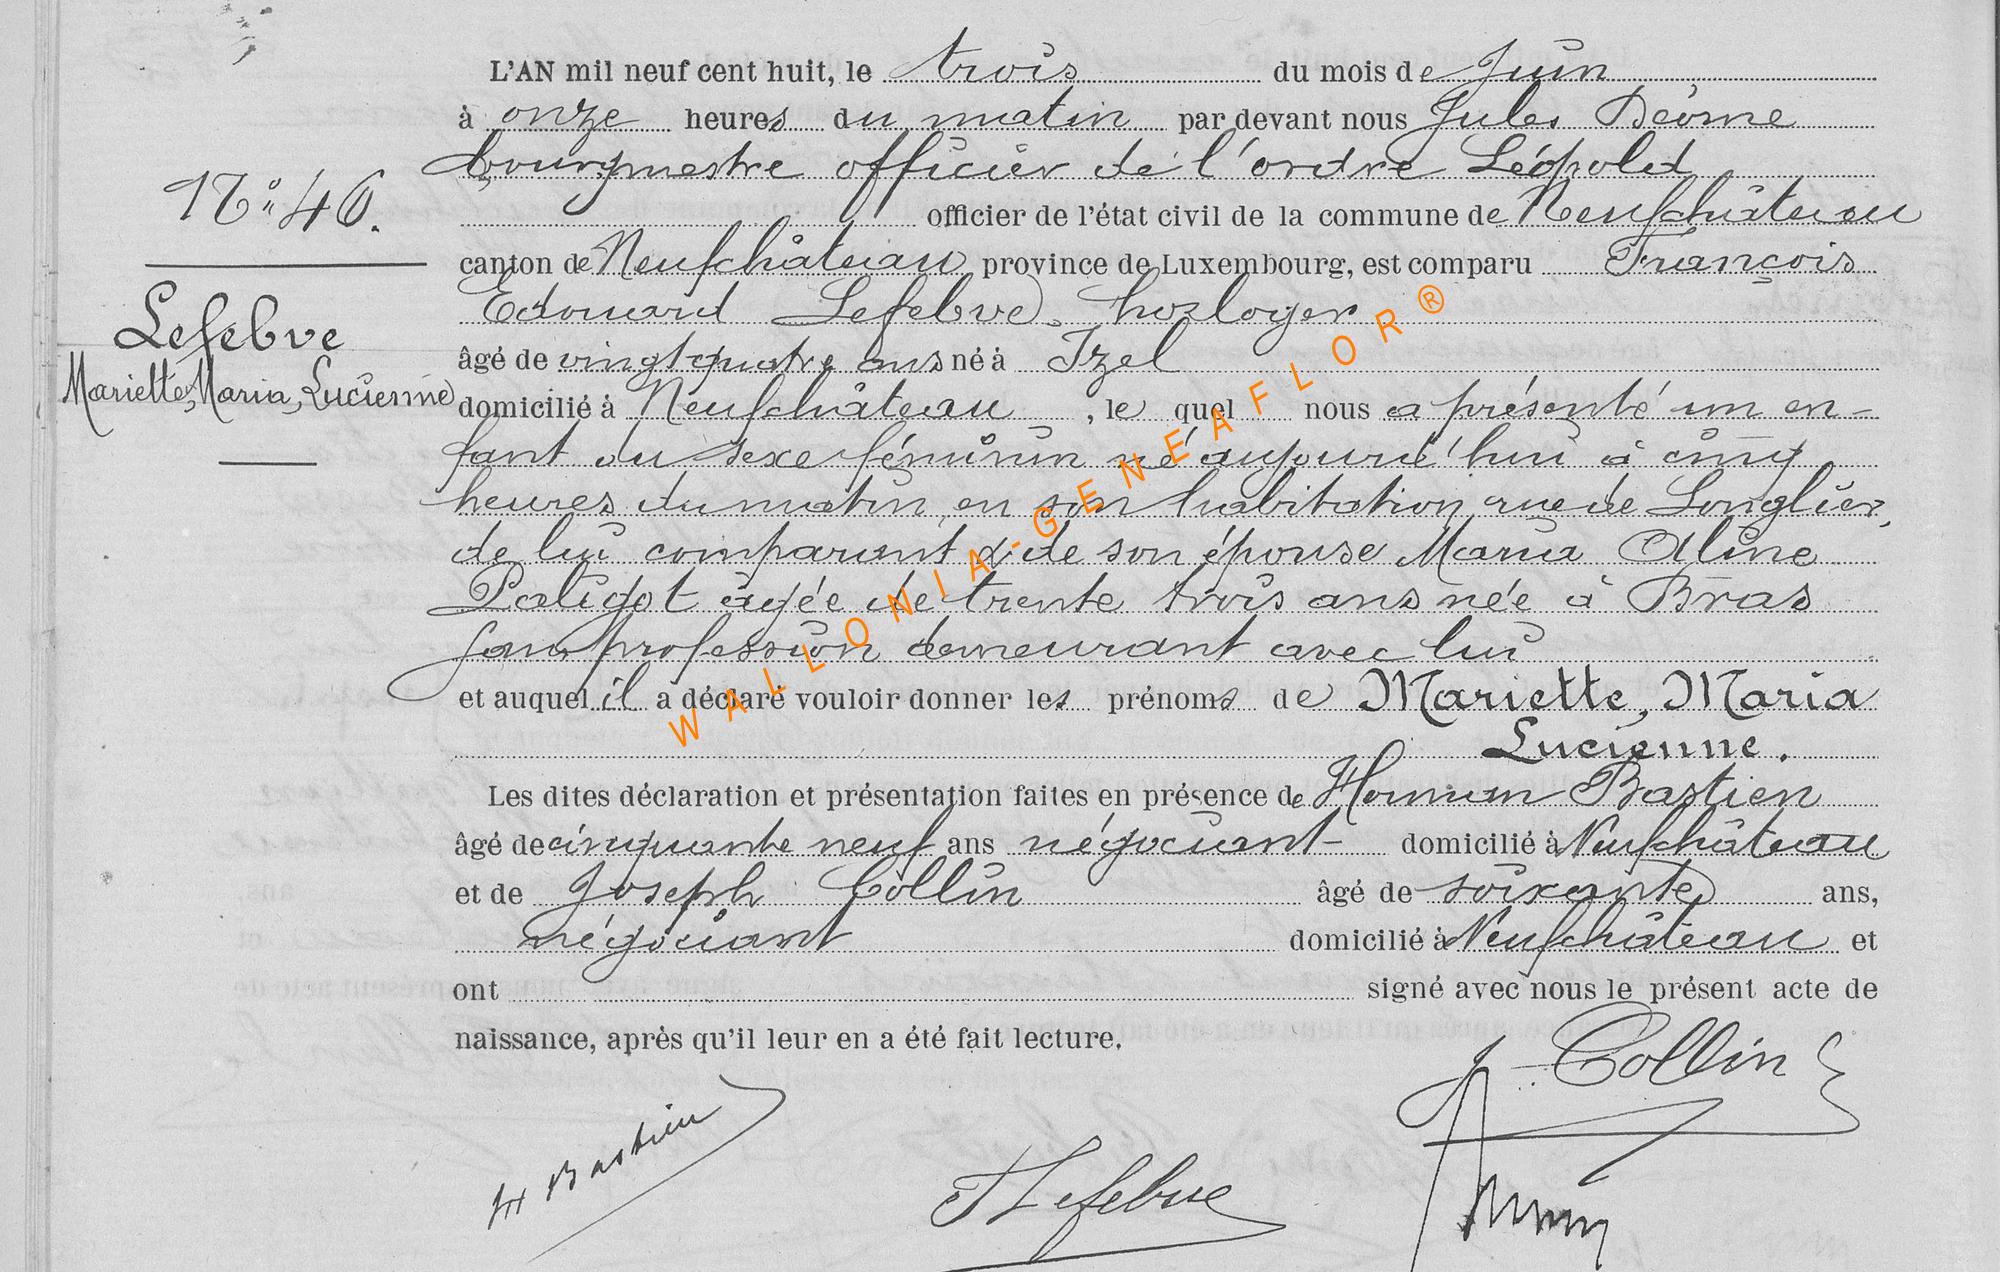 L'AN mil neuf cent huit, le trois du mois de Juin
à onze heures du matin par devant nous Jules
bourgmestre officier de l'ordre Léopold
N° 46.
officier de l'état civil de la commune de Neufchâteau
canton de Neufchâteau province de Luxembourg, est comparu François
Edouard Lefebve, horloger
Lefebve
âgé de vingtquatre ans né à Izel
Mariette, Maria, Lucienne
domicilié à Neufchâteau, le quel nous a présenté un en-
fant du sexe féminin né aujourd'hui à cinq
heures du matin, en son habitation, rue de Longlier,
de lui comparant & de son épouse Maria Aline
Paligot agée de trente trois ans née à Bras
sans profession demeurant avec lui
et auquel il a déclaré vouloir donner les prénoms de Mariette, Maria
Lucienne.
Les dites déclaration et présentation faites en présence de Bastien
âgé de cinquante neuf ans négociant domicilié à Neufchâteau
et de Joseph Collin âgé de soixante ans,
négociant domicilié à Neufchâteau et
ont signé avec nous le présent acte de
naissance, après qu'il leur en a été fait lecture.
J. Collin
H Bastien
F Lefebve
WALLONIA-GENEAFLOR®